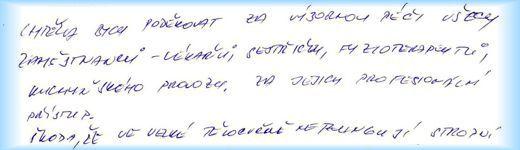 CHTĚLA BYCH PODĚKOVAT ZA VÝBORNOU PÉČI VŠECH
ZAMĚSTNANCŮ - LÉKAŘŮ, SESTŘIČEK, FYZIOTERAPEUTŮ,
KUCHYŇSKÉHO PROVOZU. ZA JEJICH PROFESIONÁLNÍ
PŘÍSTUP.
ŠKODA, ŽE VE VELKÉ TĚLOCVIČNĚ NEFUNGUJÍ STROPNÍ